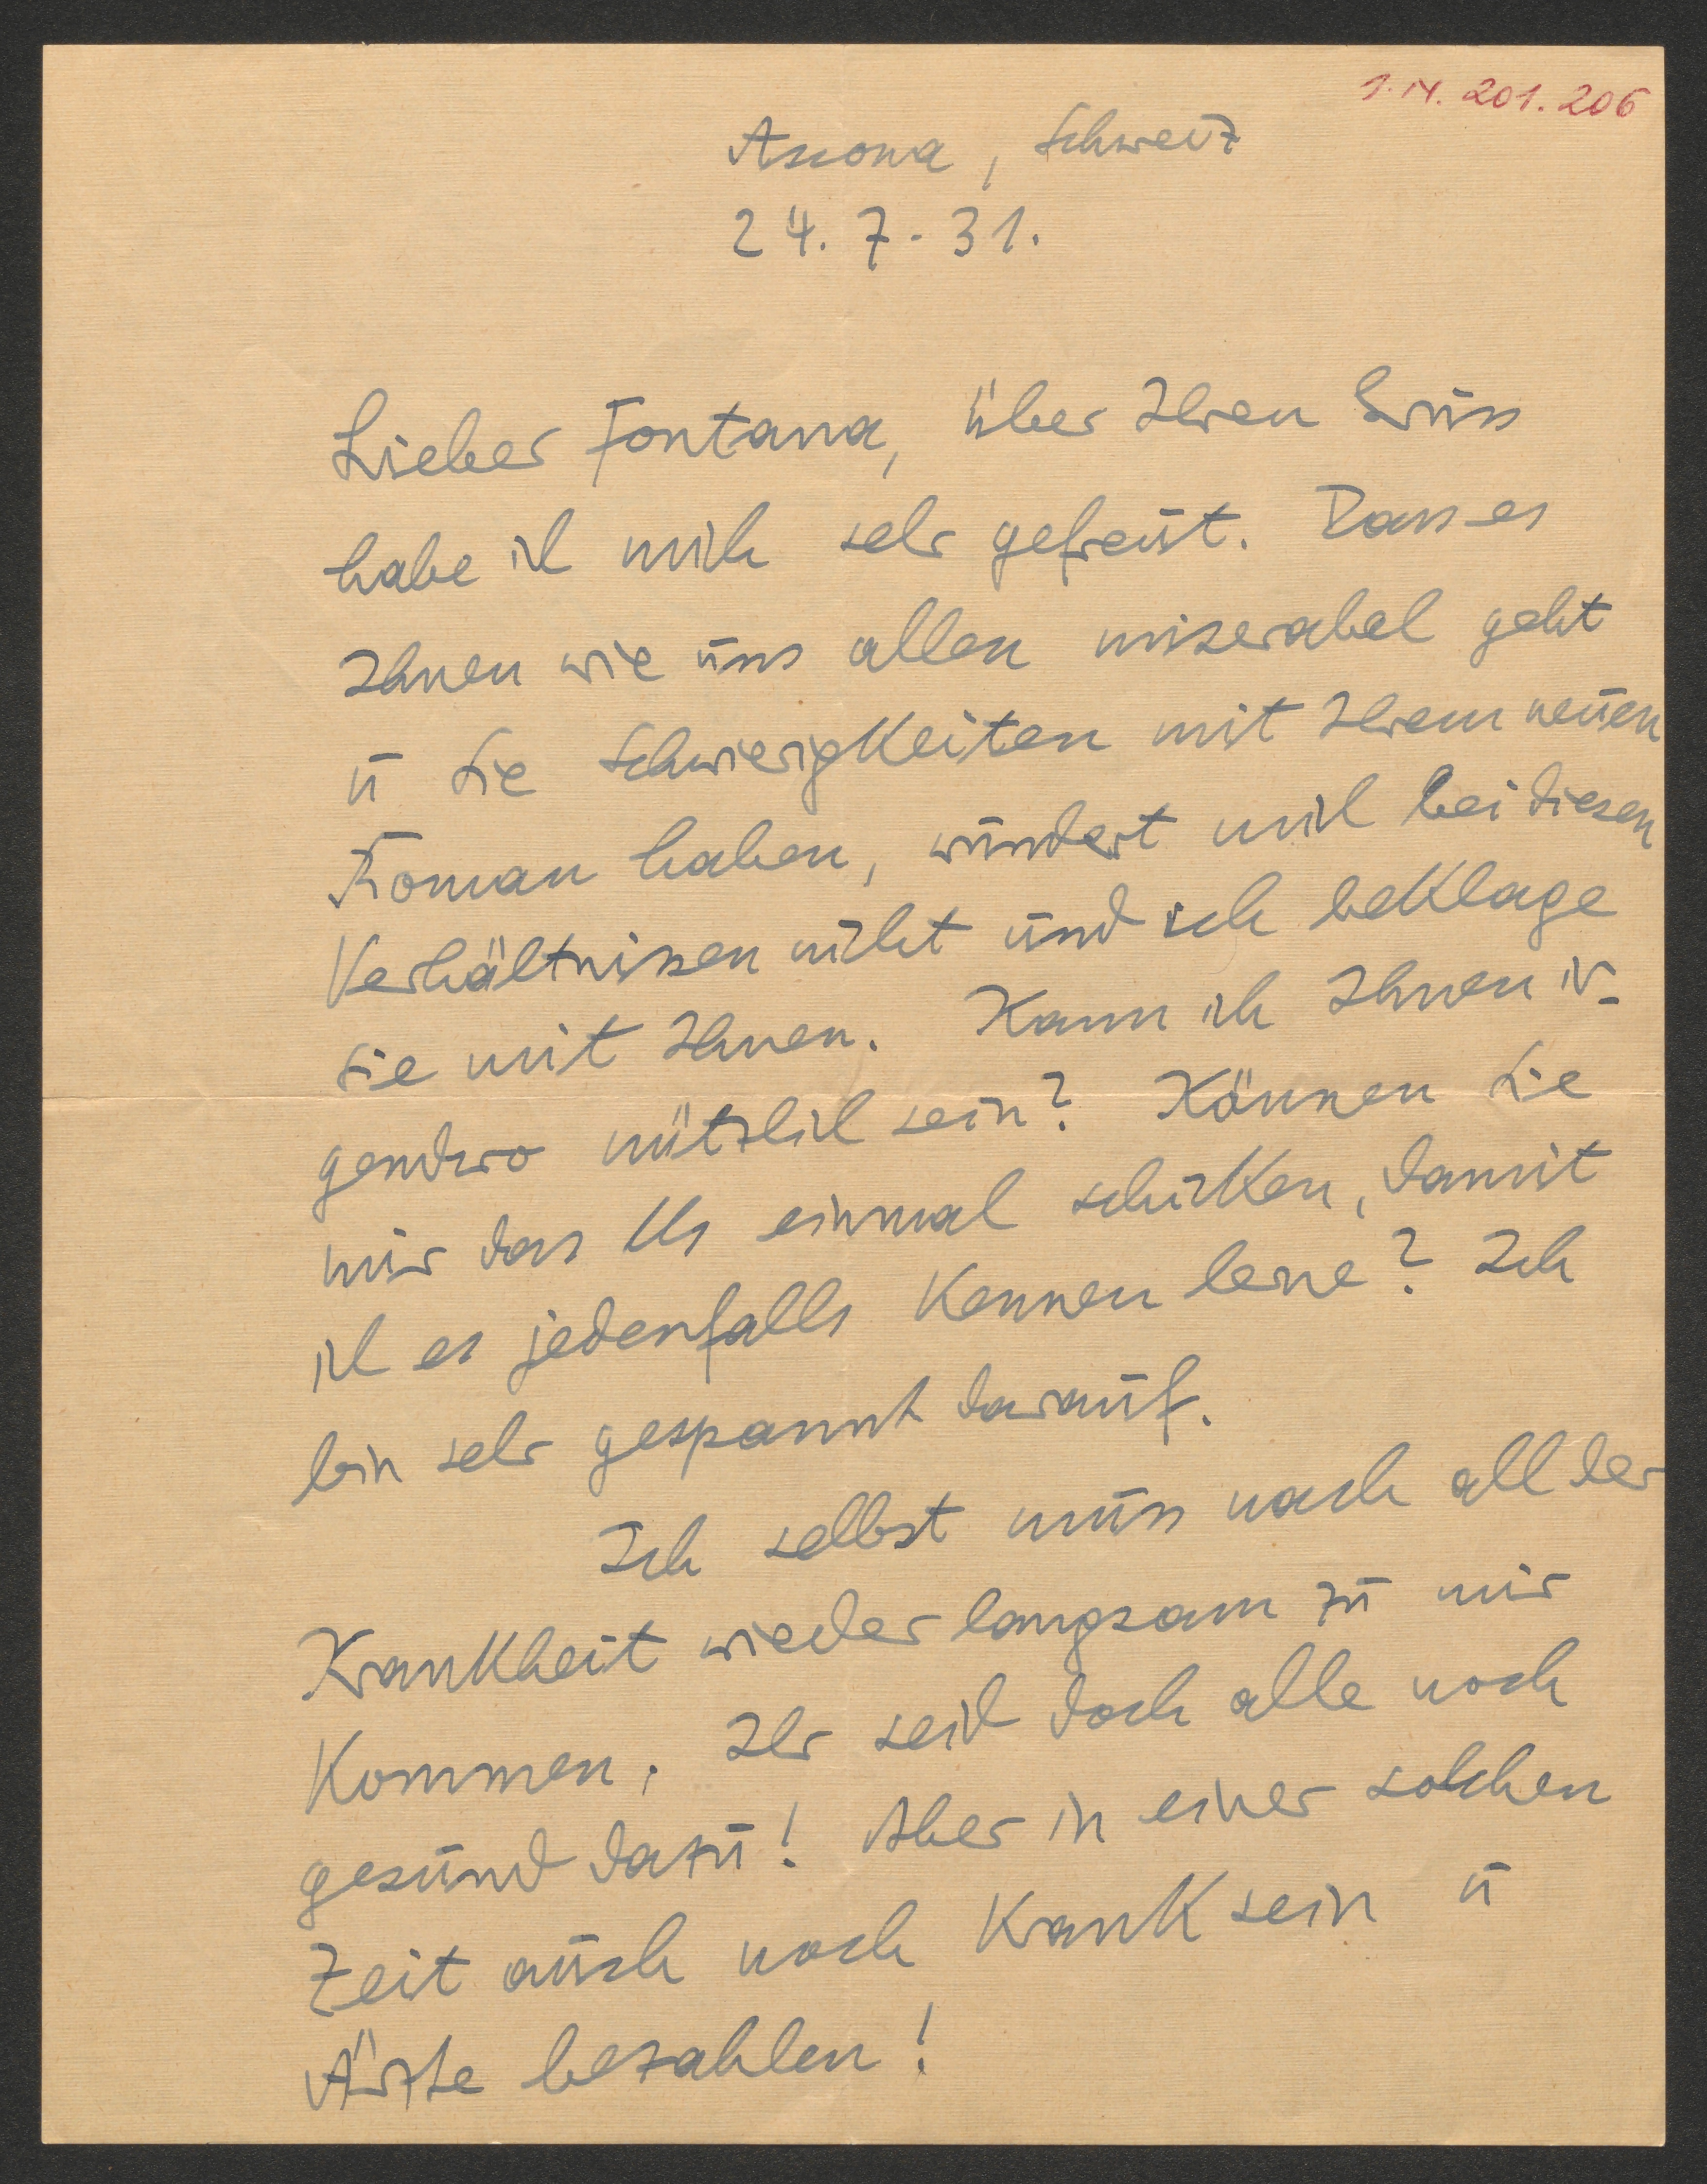 I.N. 201.206
Ascona, Schweiz
24. 7. 31.
Lieber Fontana, über Ihren Gruss
habe ich mich sehr gefreut. Dass es
Ihnen wie uns allen miserabel geht
u Sie Schwierigkeiten mit Ihrem neuen
Roman haben, wundert mich bei diesen
Verhältnissen nicht und ich beklage
sie mit Ihnen. Kann ich Ihnen ir-
gendwo nützlich sein? Können Sie
mir das Ms einmal schicken, damit
ich es jedenfalls kennen lerne? Ich
bin sehr gespannt darauf.
Ich selbst muss nach all der
Krankheit wieder langsam zu mir
kommen. Ihr seid doch alle noch
gesund dazu! Aber in einer solchen
Zeit auch noch krank sein u
Ärzte bezahlen!